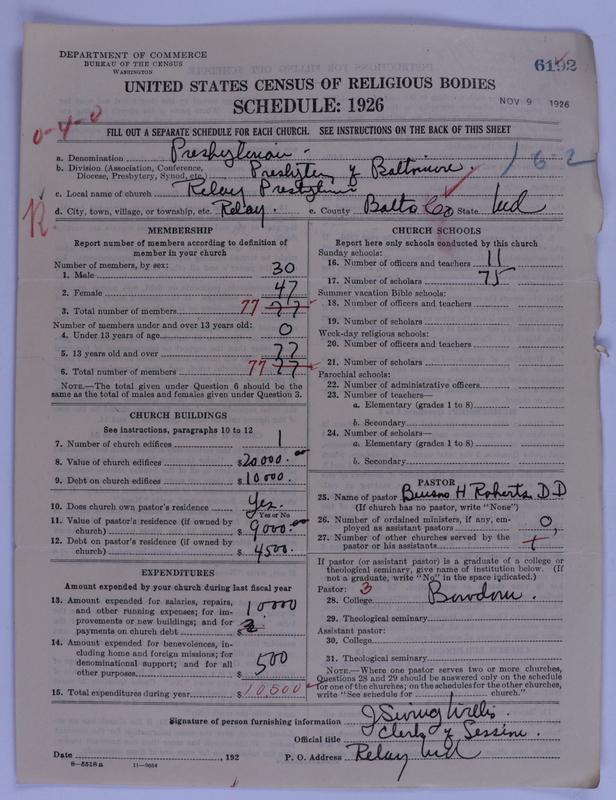 DEPARTMENT OF COMMERCE
BUREAU OF THE CENSUS
WASHINGTON
6192
UNITED STATES CENSUS OF RELIGIOUS BODIES
SCHEDULE: 1926
NOV 9 1926
0-4-0
FILL OUT A SEPARATE SCHEDULE FOR EACH CHURCH. SEE INSTRUCTIONS ON THE BACK OF THIS SHEET
a. Denomination Presbyterian
162
b. Division (Association, Conference, Diocese, Presbytery, Synod, etc.) Presbytery of Baltimore.
c. Local name of church Relay Presbyterian
R
d. City, town, village, or township, etc. Relay. e. County Balto Co State Md
MEMBERSHIP
Report number of members according to definition of
member in your church
Number of members, by sex:
1. Male 30
2. Female 47
3. Total number of members 77 77
Number of members under and over 13 years old:
4. Under 13 years of age 0
5. 13 years old and over 77
6. Total number of members 77 77
NOTE.—The total given under Question 6 should be the
same as the total of males and females given under Question 3.
CHURCH BUILDINGS
See instructions, paragraphs 10 to 12
7. Number of church edifices 1
8. Value of church edifices $20000.00
9. Debt on church edifices $10000.
10. Does church own pastor's residence Yes.
Yes or No
11. Value of pastor's residence (if owned by
church) $9000.00
12. Debt on pastor's residence (if owned by
church) $4500.
EXPENDITURES
Amount expended by your church during last fiscal year
13. Amount expended for salaries, repairs,
and other running expenses; for im-
provements or new buildings; and for
payments on church debt $10000
14. Amount expended for benevolences, in-
cluding home and foreign missions; for
denominational support; and for all
other purposes $500
15. Total expenditures during year $10,500
CHURCH SCHOOLS
Report here only schools conducted by this church
Sunday schools:
16. Number of officers and teachers 11
17. Number of scholars 75
Summer vacation Bible schools:
18. Number of officers and teachers
19. Number of scholars
Week-day religious schools:
20. Number of officers and teachers
21. Number of scholars
Parochial schools:
22. Number of administrative officers
23. Number of teachers—
a. Elementary (grades 1 to 8)
b. Secondary
24. Number of scholars—
a. Elementary (grades 1 to 8)
b. Secondary
PASTOR
25. Name of pastor H Roberts D D
(If church has no pastor, write "None")
26. Number of ordained ministers, if any, em-
ployed as assistant pastors 0
27. Number of other churches served by the
pastor or his assistants
If pastor (or assistant pastor) is a graduate of a college or
theological seminary, give name of institution below. (If
not a graduate, write "No" in the space indicated.)
Pastor: 3
28. College Bowdoin.
29. Theological seminary
Assistant pastor:
30. College
31. Theological seminary
NOTE.—Where one pastor serves two or more churches,
Questions 28 and 29 should be answered only on the schedule
for one of the churches; on the schedules for the other churches,
write "See schedule for church."
Signature of person furnishing information J Ewing Willis.
Official title Clerk of Session.
Date , 192 P. O. Address Relay Md
8—5518a 11—9654